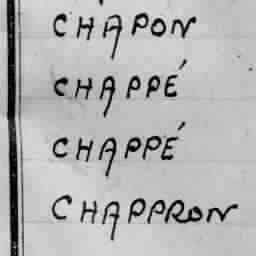 CHAPON
CHAPPÉ
CHAPPÉ
CHAPPRON